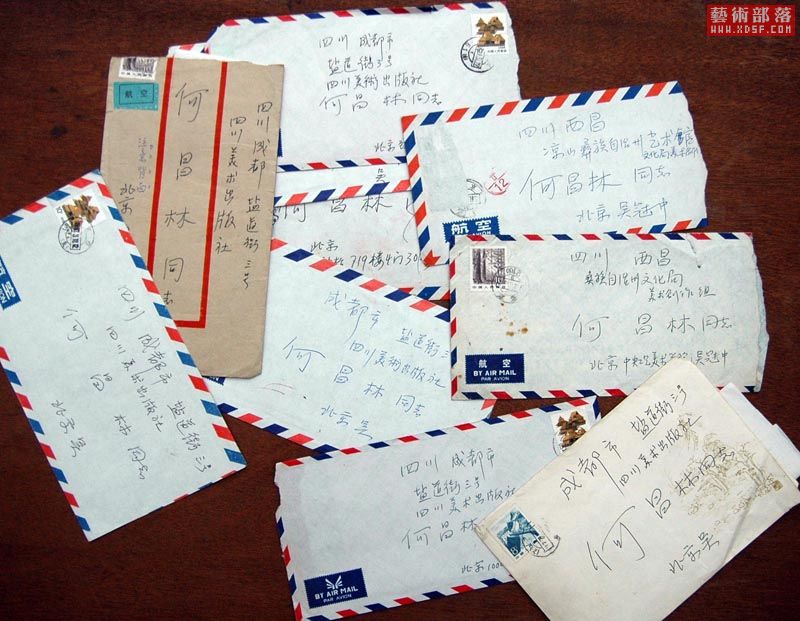 藝術部落
WWW.XDSF.COM
四川 成都市
盐道街3号
四川美術出版社
何昌林同志
北京
航空
四川成都 盐道街三号
四川美术出版社
何昌林同志
北京
四川 西昌
凉山彝族自治州 艺术館
文化局美术
何昌林同志
北京 吴冠中
航空
何昌林
北京
719楼4门30
四川 西昌
彝族自治州文化局
美术创作组
何昌林同志
北京 中央工艺美术学院 吴冠中
航空
BY AIR MAIL
PAR AVION
成都市
盐道街三号
四川美术出版社
何昌林同志
北京 吴
四川 成都市 盐道街三号
四川美术出版社
何昌林同志
北京吴
航空
四川 成都市
盐道街三号
四川美术出版社
何昌林
北京 100
BY AIR MAIL
PAR AVION
成都市 盐道街三号
四川美术出版社
何昌林同志
北京吴
8